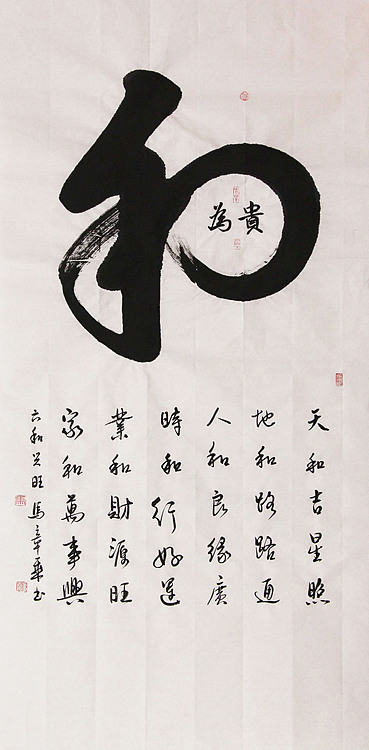 和
為貴
天和吉星照
地和路路通
人和良緣廣
時和行好運
業和財源旺
家和萬事興
六和興旺 馬章乘書